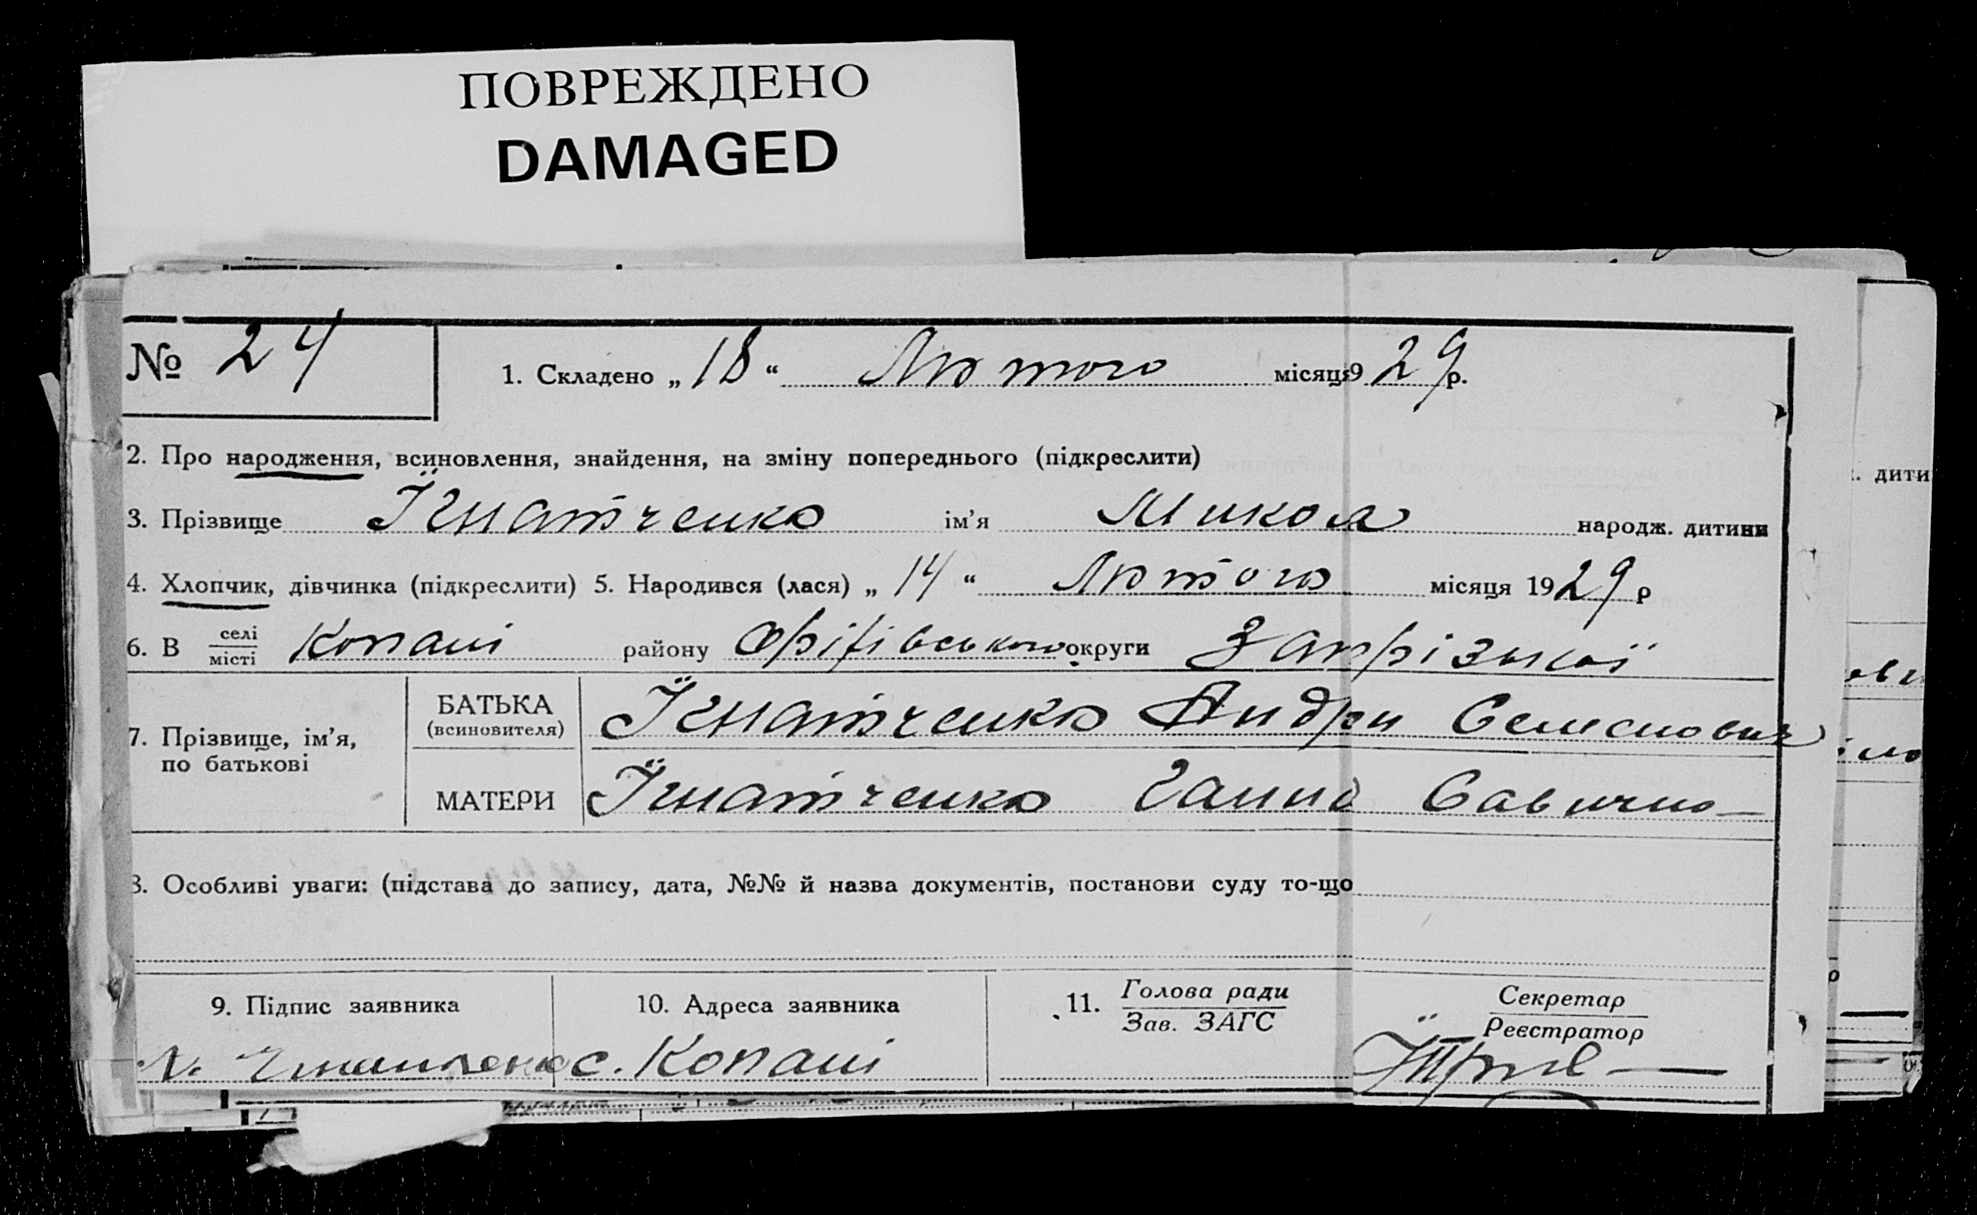 ПОВРЕЖДЕНО
DAMAGED
№ 24
1. Складено „ 18 “ Лютого місяця 1929 р.
2. Про народження, всиновлення, знайдення, на зміну попереднього (підкреслити)
3. Прізвище Їгнатченко ім’я Микола народж. дитини
4. Хлопчик, дівчинка (підкреслити) 5. Народився (лася) „ 14 “ Лютого місяця 1929 р
6. В селі
місті Копані району Оріхівського округи Запрізької
7. Прізвище, ім’я,
по батькові
БАТЬКА
(всиновителя) Їгнатченко Андри Семенович
МАТЕРИ Їгнатченко Ганна Савична
8. Особливі уваги: (підстава до запису, дата, №№ й назва документів, постанови суду то-що
9. Підпис заявника 10. Адреса заявника 11. Голова ради
Зав. ЗАГС
Секретар
Реєстратор
с. Копані
дити